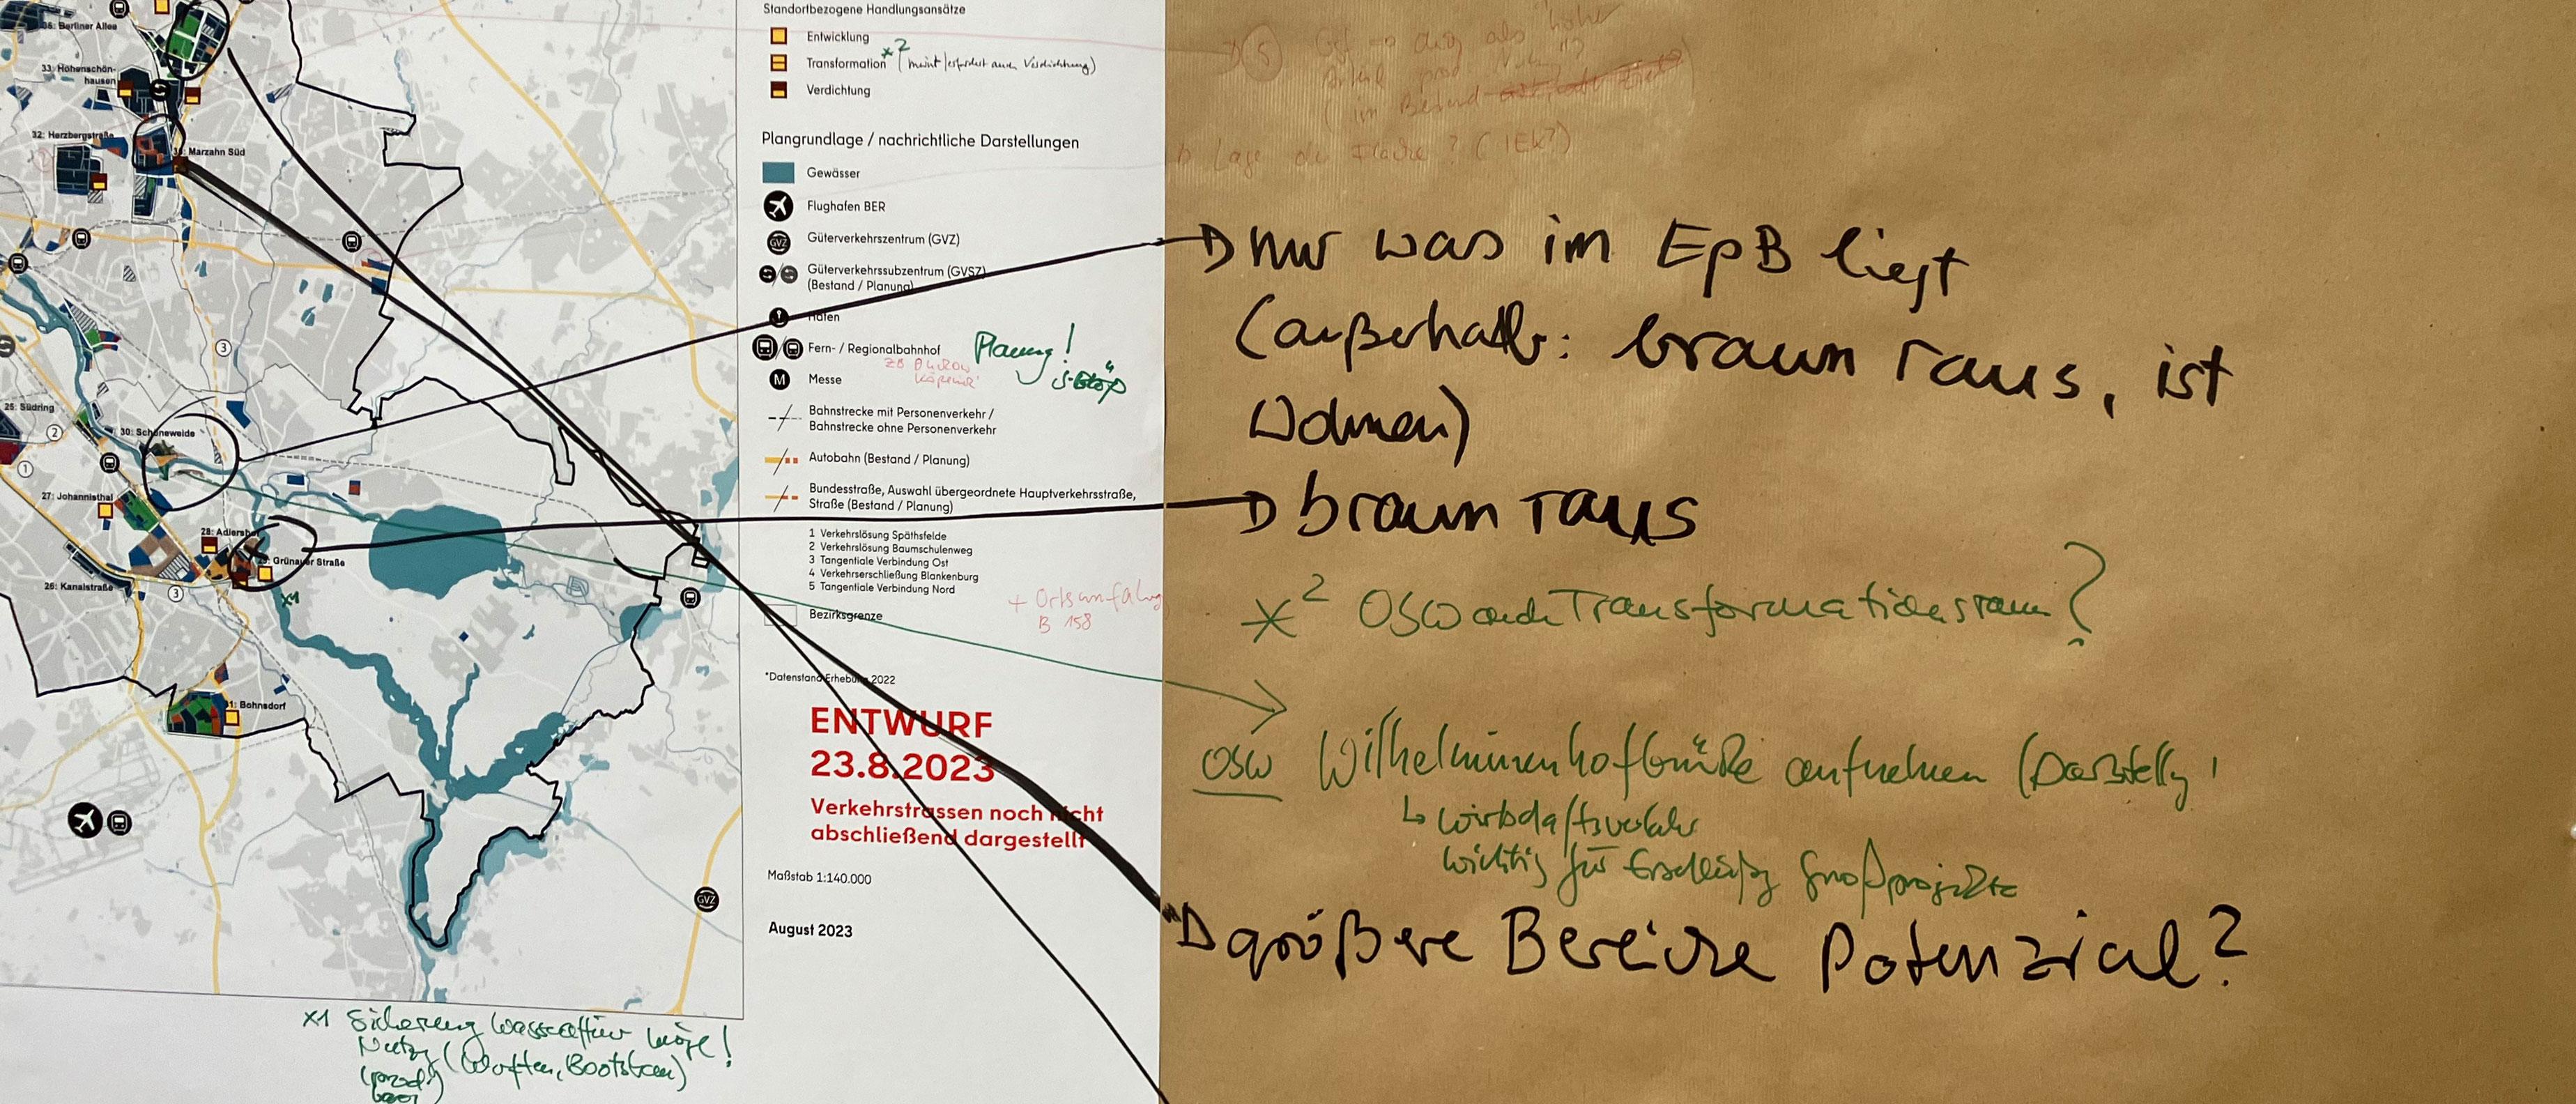 36: Berliner Allee
33: Hohenschön-
hausen
32: Herzbergstraße
34: Marzahn Süd
3
25: Südring
2
30: Schöneweide
1
27: Johannisthal
28: Adlershof
29: Grünauer Straße
26: Kanalstraße
3
x1
31: Bohnsdorf
GVZ
Standortbezogene Handlungsansätze
Entwicklung
Transformation *2 (meint/erfordert auch Verdichtung)
Verdichtung
Plangrundlage / nachrichtliche Darstellungen
Gewässer
Flughafen BER
GVZ Güterverkehrszentrum (GVZ)
Güterverkehrssubzentrum (GVSZ)
(Bestand / Planung)
Häfen
Fern- / Regionalbahnhof
Planung!
zB Buckow
Köpenick
M Messe
Bahnstrecke mit Personenverkehr /
Bahnstrecke ohne Personenverkehr
Autobahn (Bestand / Planung)
Bundesstraße, Auswahl übergeordnete Hauptverkehrsstraße,
Straße (Bestand / Planung)
1 Verkehrslösung Späthsfelde
2 Verkehrslösung Baumschulenweg
3 Tangentiale Verbindung Ost
4 Verkehrserschließung Blankenburg
5 Tangentiale Verbindung Nord
+ Ortsumfahrg
B 158
Bezirksgrenze
*Datenstand Erhebung 2022
ENTWURF
23.8.2023
Verkehrstrassen noch nicht
abschließend dargestellt
Maßstab 1:140.000
August 2023
x1 Sicherung wasseraffine
Nutzg (Werften, Bootsbau)
5
als "hoher
(im Bestand
Lage der Fläche? (IEK?)
nur was im EpB liegt
(außerhalb: braun raus, ist
Wohnen)
braun raus
*2 OSW auch Transformationsraum?
OSW Wilhelminenhofbrücke aufnehmen (Darstellg!
↳ Wirtschaftsverkehr
wichtig für Erschließg Großprojekte
größere Bereiche Potenzial?